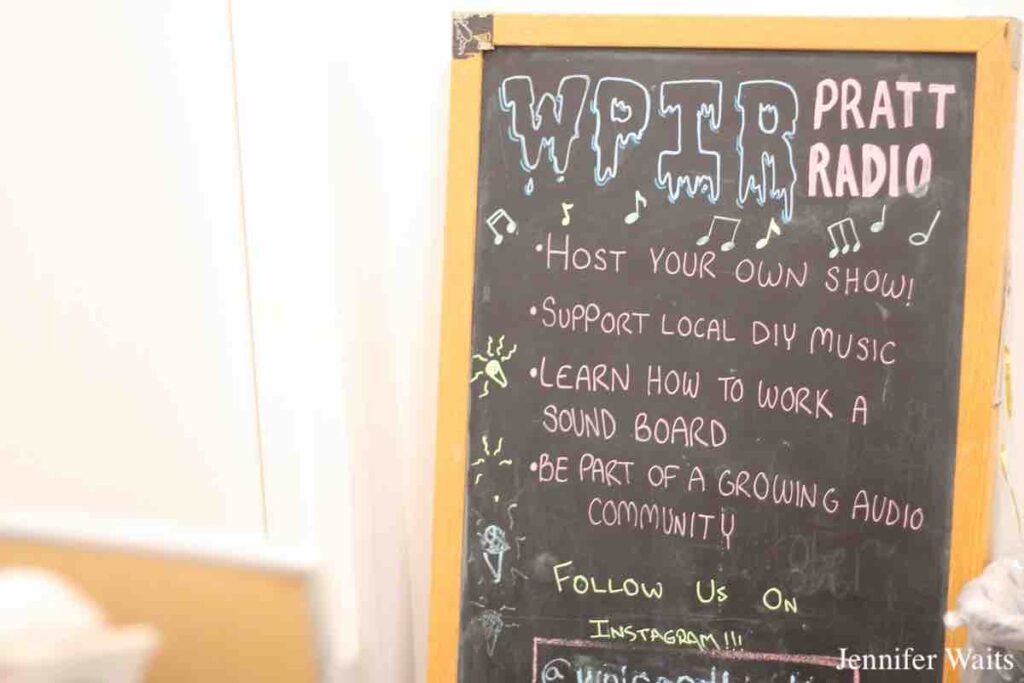 WPIR PRATT
RADIO
• HOST YOUR OWN SHOW!
• SUPPORT LOCAL DIY MUSIC
• LEARN HOW TO WORK A
SOUND BOARD
• BE PART OF A GROWING AUDIO
COMMUNITY
FOLLOW US ON
INSTAGRAM!!!
Jennifer Waits